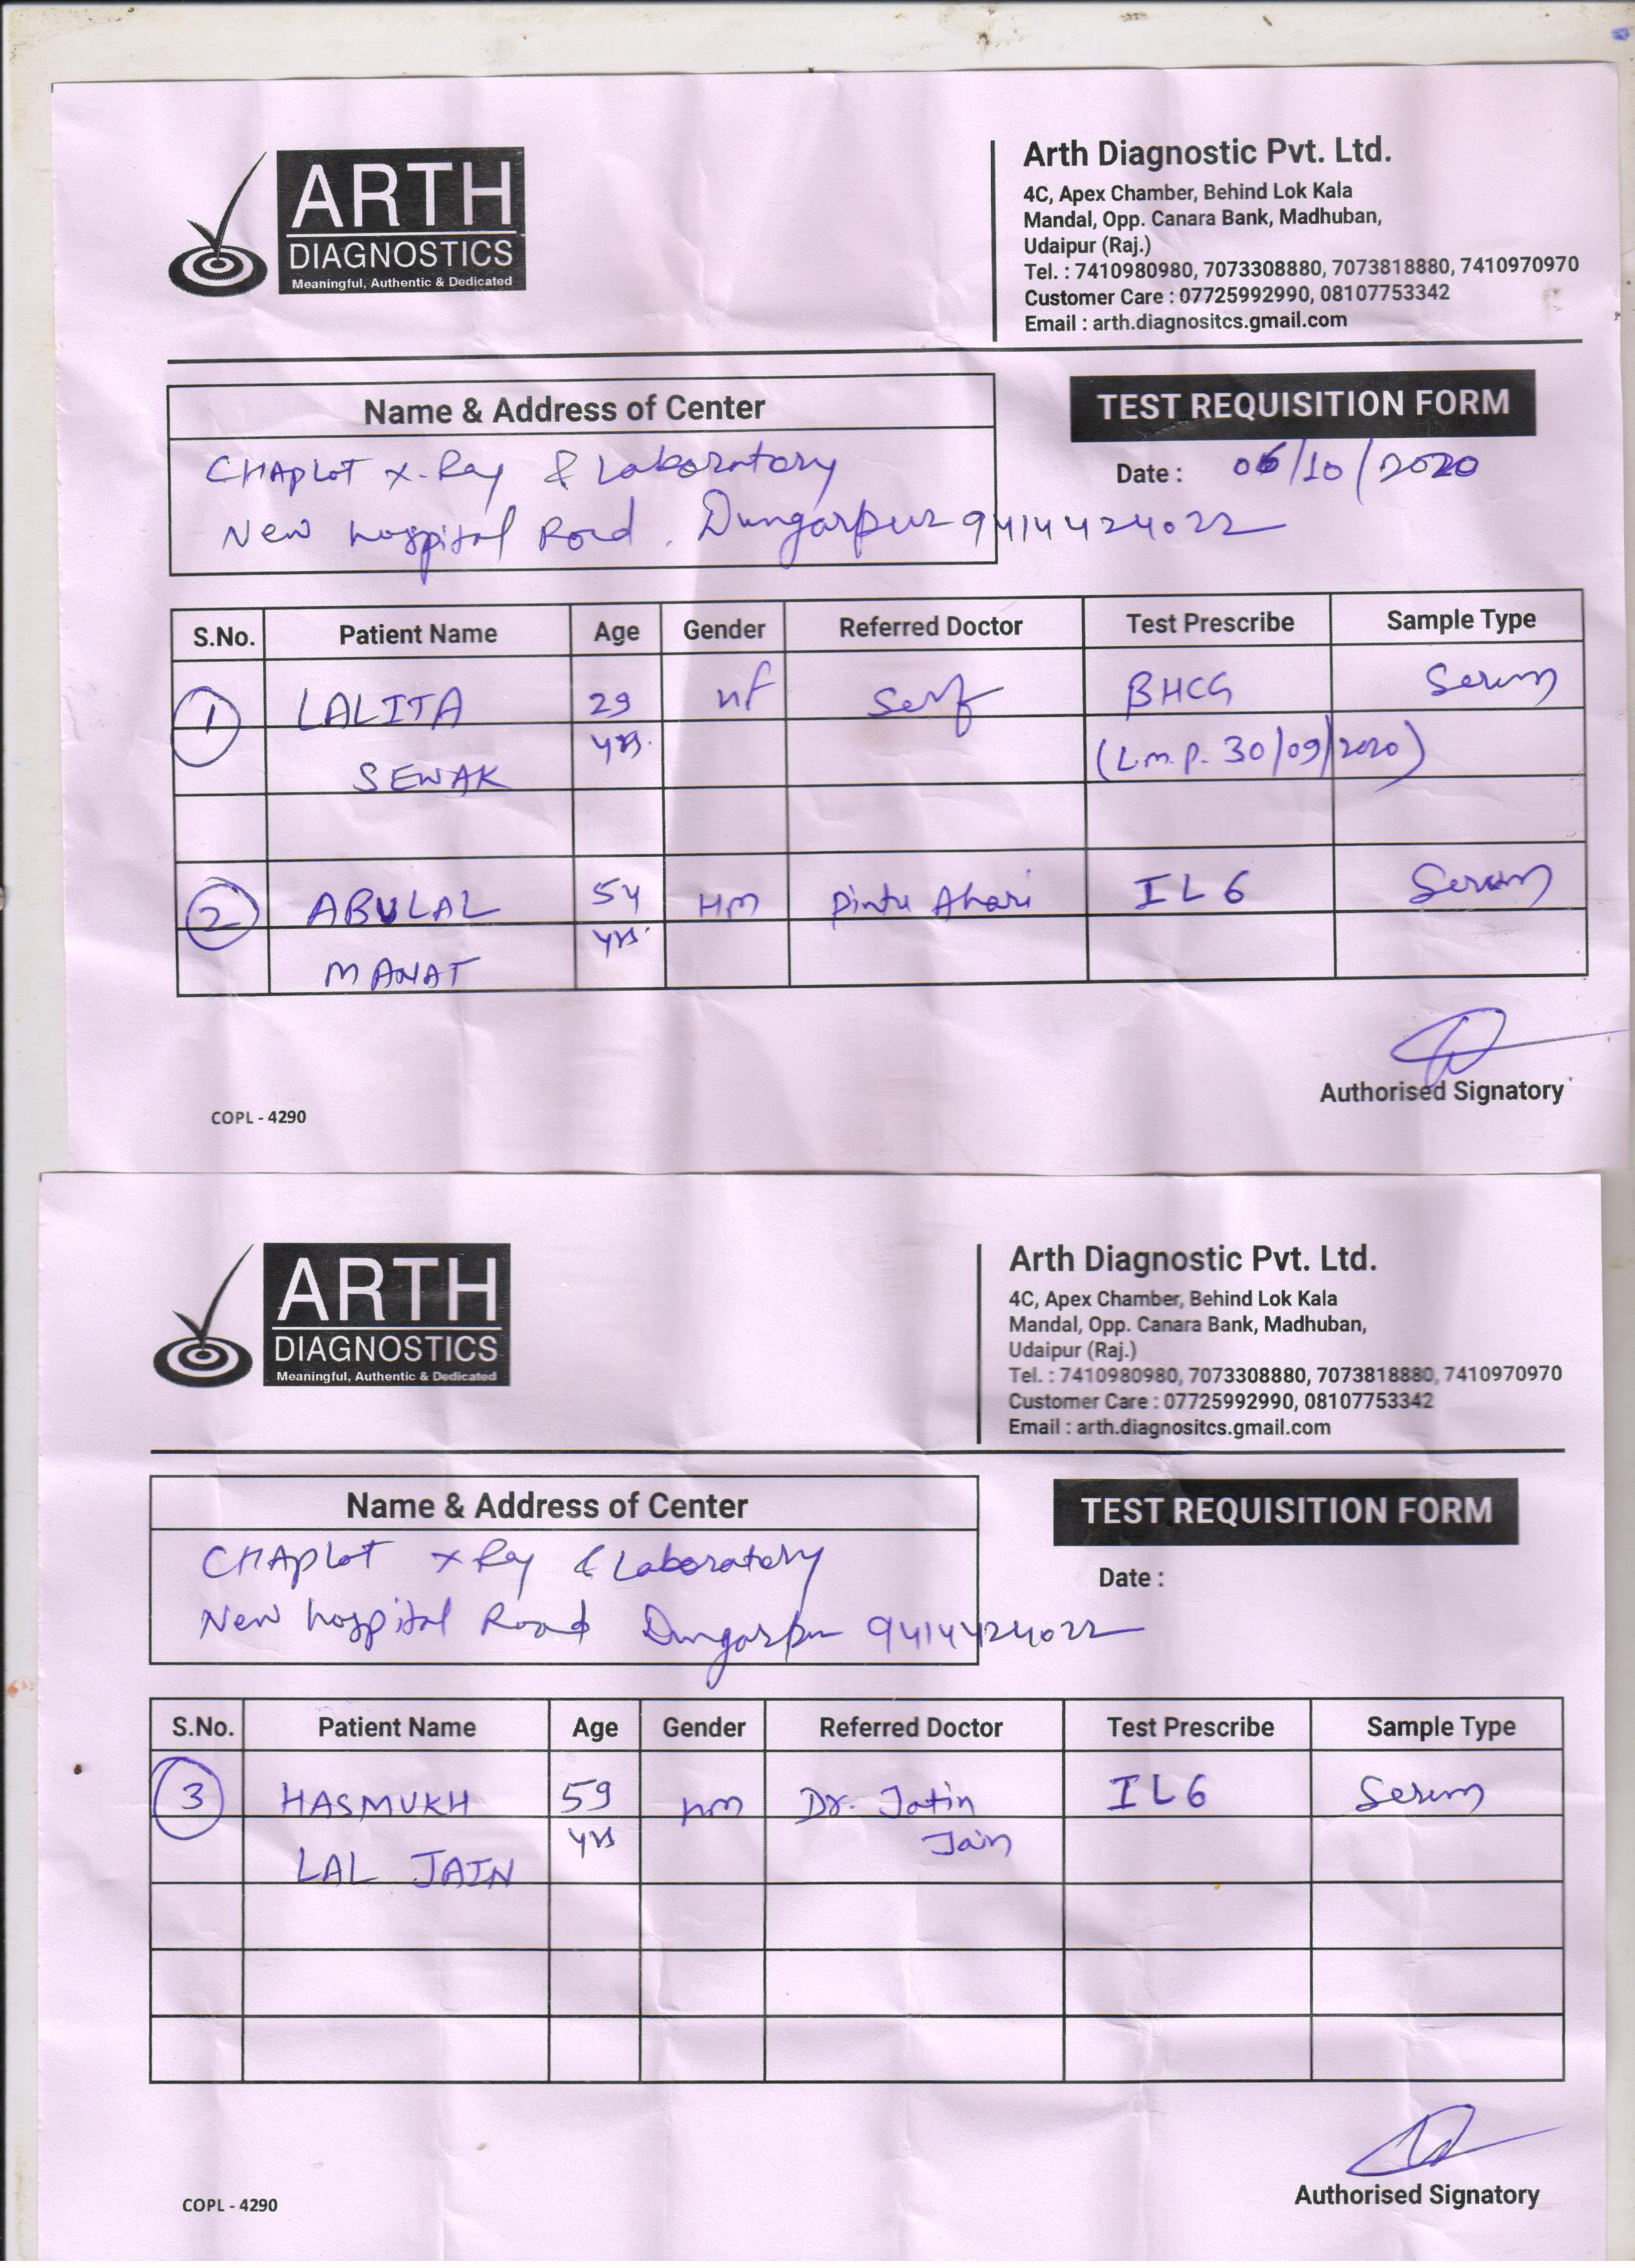 ARTH
DIAGNOSTICS
Meaningful, Authentic & Dedicated
Arth Diagnostic Pvt. Ltd.
4C, Apex Chamber, Behind Lok Kala
Mandal, Opp. Canara Bank, Madhuban,
Udaipur (Raj.)
Tel. : 7410980980, 7073308880, 7073818880, 7410970970
Customer Care : 07725992990, 08107753342
Email : arth.diagnositcs.gmail.com
Name & Address of Center
TEST REQUISITION FORM
CHAPLOT X-Ray & Laboratory
Date : 06/10/2020
New hospital Road. Dungarpur 9414424022
S.No. Patient Name Age Gender Referred Doctor Test Prescribe Sample Type
1 LALITA 29 Self BHCG Serum
yrs. (L.m.p. 30/09/2020)
SEWAK
2 ABULAL 54 Pintu Ahari IL6 Serum
yrs.
MANAT
Authorised Signatory
COPL - 4290
ARTH
DIAGNOSTICS
Meaningful, Authentic & Dedicated
Arth Diagnostic Pvt. Ltd.
4C, Apex Chamber, Behind Lok Kala
Mandal, Opp. Canara Bank, Madhuban,
Udaipur (Raj.)
Tel. : 7410980980, 7073308880, 7073818880, 7410970970
Customer Care : 07725992990, 08107753342
Email : arth.diagnositcs.gmail.com
Name & Address of Center
TEST REQUISITION FORM
CHAPLOT X Ray & Laboratory
Date :
New hospital Road Dungarpur 9414424022
S.No. Patient Name Age Gender Referred Doctor Test Prescribe Sample Type
3 HASMUKH 59 Dr. Jatin IL6 Serum
yrs Jain
LAL JAIN
Authorised Signatory
COPL - 4290